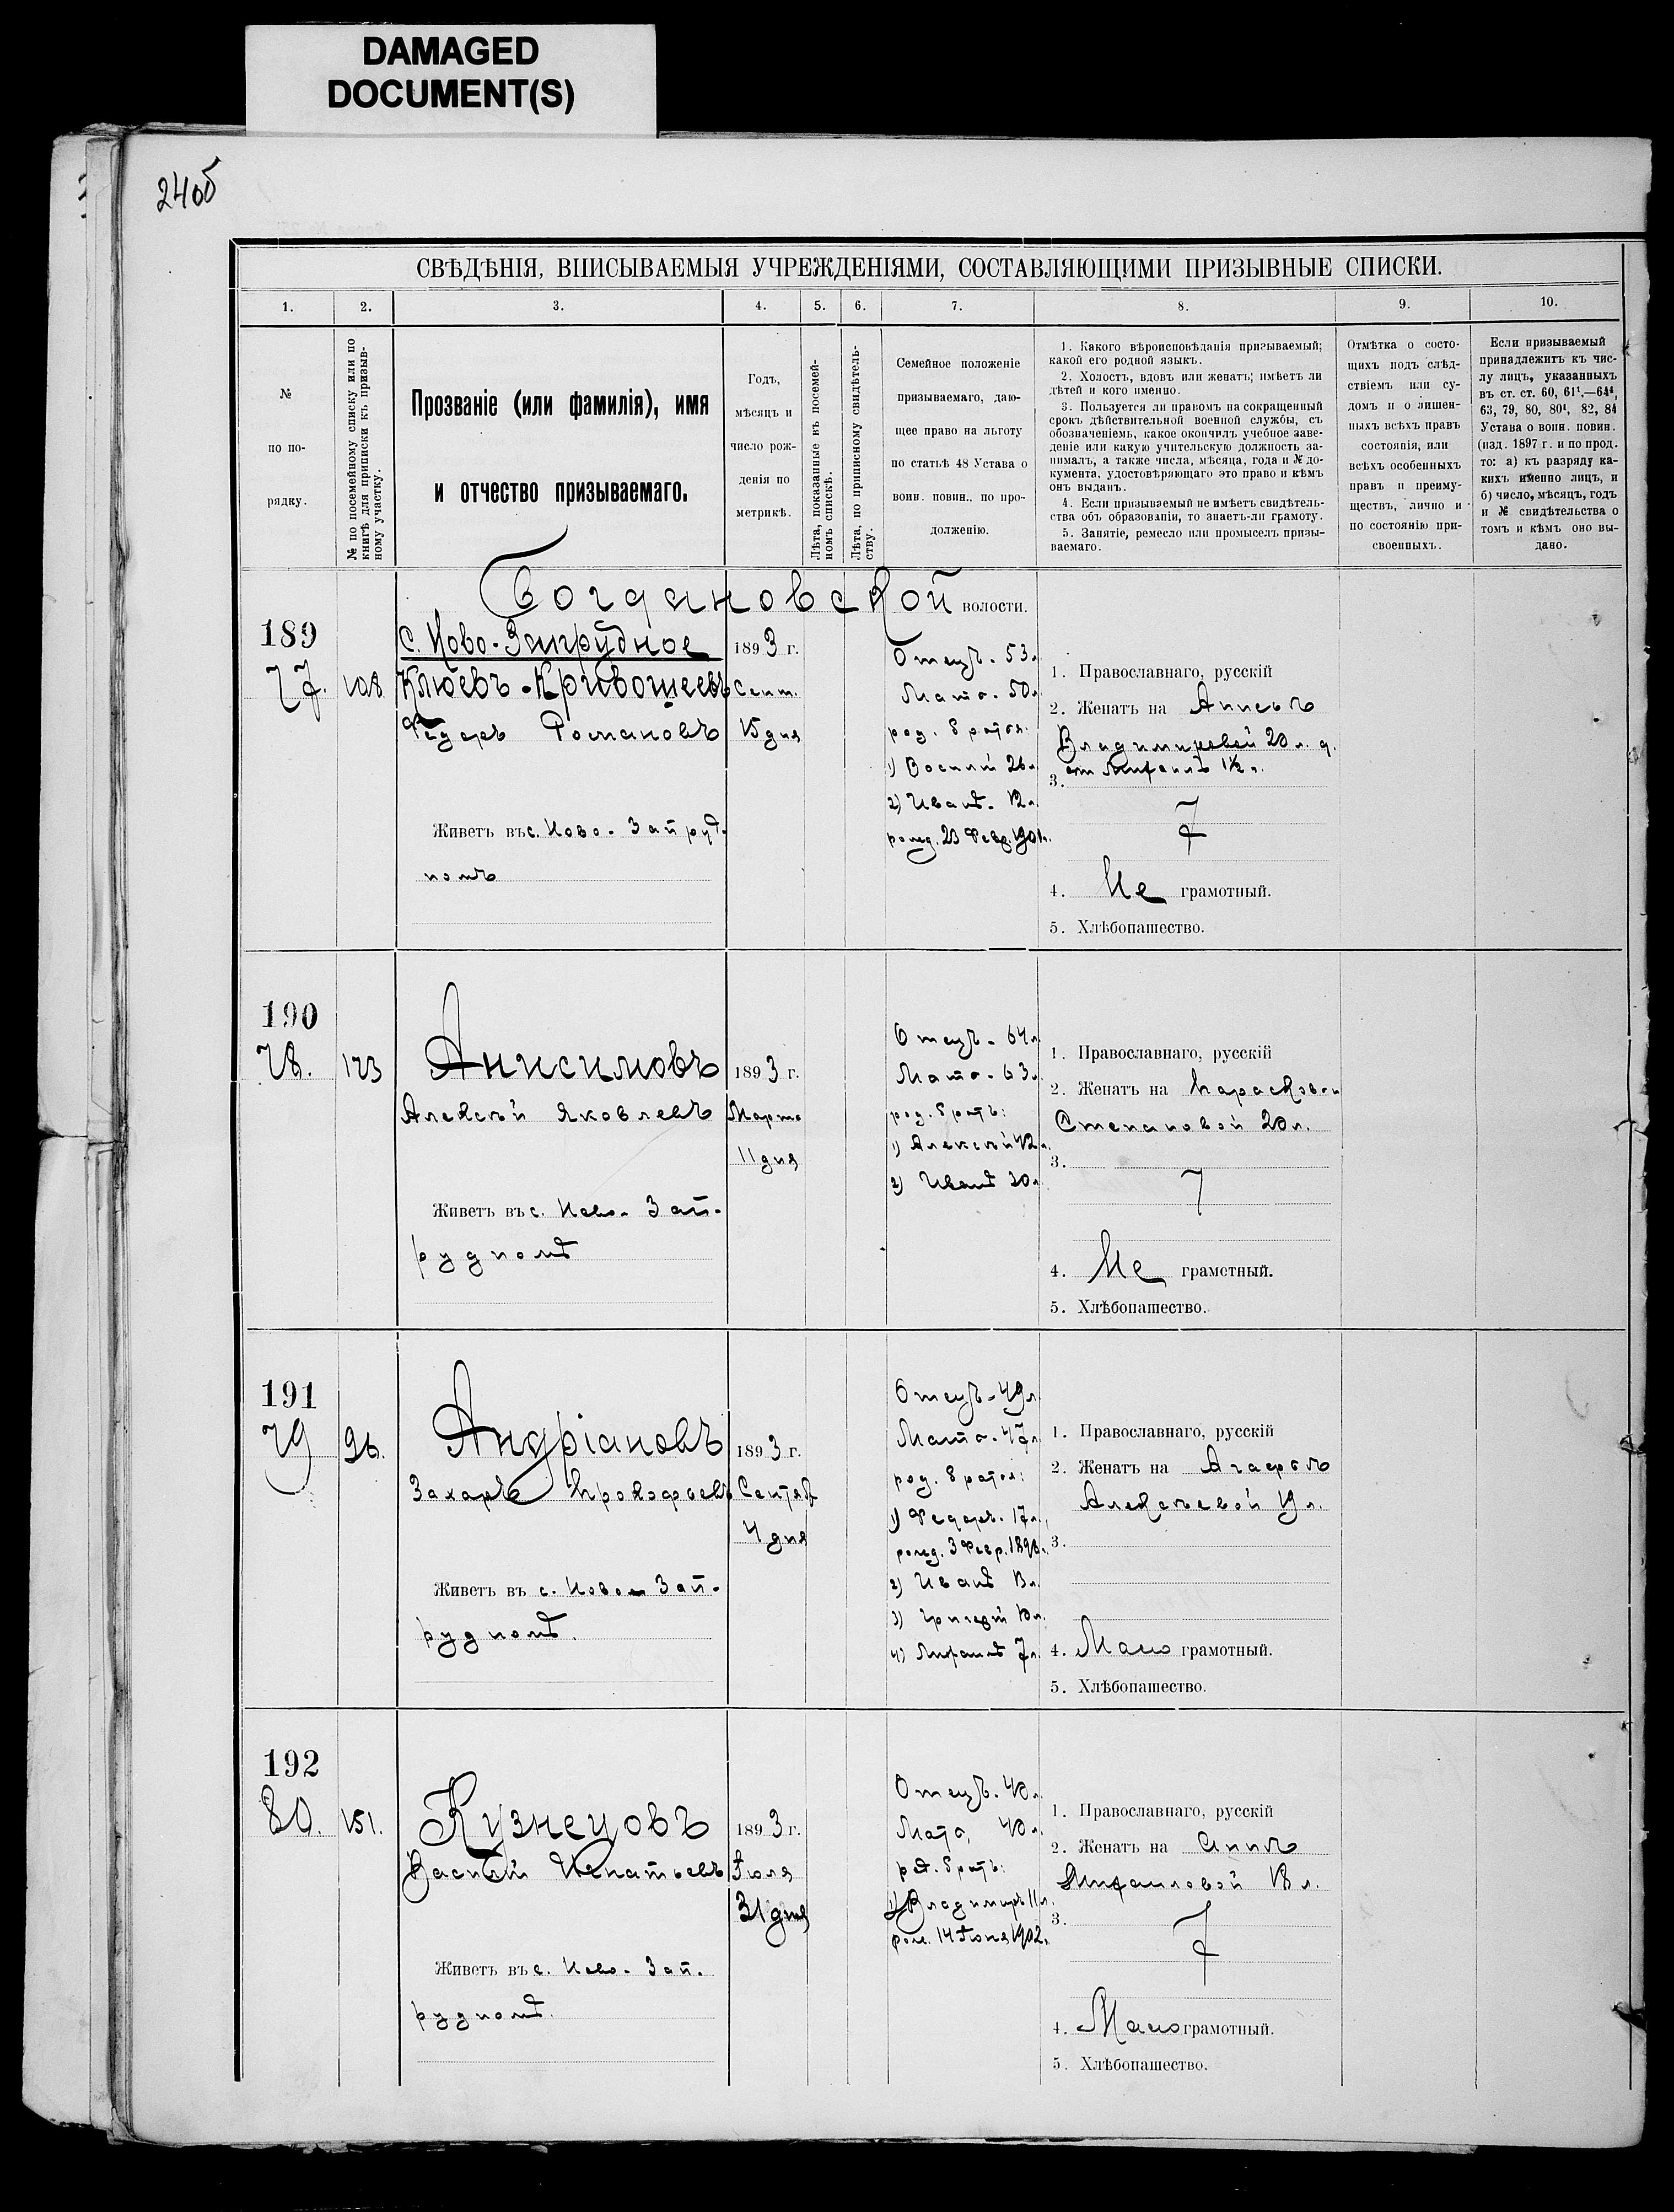 DAMAGED
DOCUMENT(S)
24об
СВѢДѢНІЯ, ВПИСЫВАЕМЫЯ УЧРЕЖДЕНІЯМИ, СОСТАВЛЯЮЩИМИ ПРИЗЫВНЫЕ СПИСКИ.
1. 2. 3. 4. 5. 6. 7. 8. 9. 10.
№
по по-
рядку.
№ по посемейному списку или по
книгѣ для приписки къ призыв-
ному участку.
Прозваніе (или фамилія), имя
и отчество призываемаго.
Годъ,
мѣсяцъ и
число рож-
денія по
метрикѣ.
Лѣта, показанные въ посемей-
номъ спискѣ.
Лѣта, по приписному свидѣтель-
ству.
Семейное положеніе
призываемаго, даю-
щее право на льготу
по статьѣ 48 Устава о
воин. повин.. по про-
долженію.
1. Какого вѣроисповѣданія призываемый;
какой его родной языкъ.
2. Холостъ, вдовъ или женатъ; имѣетъ ли
дѣтей и кого именно.
3. Пользуется ли правомъ на сокращенный
срокъ дѣйствительной военной службы, съ
обозначеніемъ, какое окончилъ учебное заве-
деніе или какую учительскую должность за-
нималъ, а также числа, мѣсяца, года и № до-
кумента, удостовѣряющаго это право и кѣмъ
онъ выданъ.
4. Если призываемый не имѣетъ свидѣтель-
ства объ образованіи, то знаетъ-ли грамоту.
5. Занятіе, ремесло или промыселъ призы-
ваемаго.
Отмѣтка о состо-
ящихъ подъ слѣд-
ствіемъ или су-
домъ и о лишен-
ныхъ всѣхъ правъ
состоянія, или
всѣхъ особенныхъ
правъ и преиму-
ществъ, лично и
по состоянію при-
своенныхъ.
Если призываемый
принадлежитъ къ чис-
лу лицъ, указанныхъ
въ ст. ст. 60, 61¹.—64⁴,
63, 79, 80, 80¹, 82, 84
Устава о воин. повин.
(изд. 1897 г. и по прод.
то: а) къ разряду ка-
кихъ именно лицъ, и
б) число, мѣсяцъ, годъ
и № свидѣтельства о
томъ и кѣмъ оно вы-
дано.
Богдановской волости.
189
77. 108
с. Ново-Запрудное
Клюевъ-Кривошеевъ
Федоръ Романовъ
Живетъ въ с. Ново-Запруд-
номъ
1893 г.
Сент.
15 дня
Отецъ - 53 л.
Мать - 50 л.
род. братья:
1) Василій 26 л.
2) Иванъ - 12 л.
рожд. 23 Февр. 1901 г.
1. Православнаго, русскій
2. Женатъ на Анисьѣ
Владимировой 20 л. д.
сын Михаилъ 1½ г.
3.
4. Не грамотный.
5. Хлѣбопашество.
190
78. 123
Анисимовъ
Алексѣй Яковлевъ
Живетъ въ с. Ново-Зап-
рудномъ
1893 г.
Марта
11 дня
Отецъ - 64 л.
Мать - 63 л.
род. братъ:
1) Алексѣй 42 л.
2) Иванъ 30 л.
1. Православнаго, русскій
2. Женатъ на Парасковьи
Степановой 20 л.
3.
4. Не грамотный.
5. Хлѣбопашество.
191
79 96.
Андріановъ
Захаръ Прокофьевъ
Живетъ въ с. Новом Зап-
рудномъ.
1893 г.
Сентяб
4 дня
Отецъ - 49 л.
Мать - 47 л.
род. братья:
1) Федоръ - 17 л.,
рожд. 3 Февр. 1896 г.
2) Иванъ 13 л.
3) Григорій 10 л.
4) Михаилъ 7 л.
1. Православнаго, русскій
2. Женатъ на Агафьѣ
Алексѣевой 19 л.
3.
4. Мало грамотный.
5. Хлѣбопашество.
192
80. 151.
Кузнецовъ
Василій Игнатьевъ
Живетъ въ с. Ново-Зап-
рудномъ.
1893 г.
Іюля
31 дня
Отецъ - 40 л.
Мать, 40 л.
род. братъ:
1) Владимиръ 11 л.
рож. 14 Іюня 1902.
1. Православнаго, русскій
2. Женатъ на Аннѣ
Михаиловой 18 л.
3.
4. Мало грамотный.
5. Хлѣбопашество.